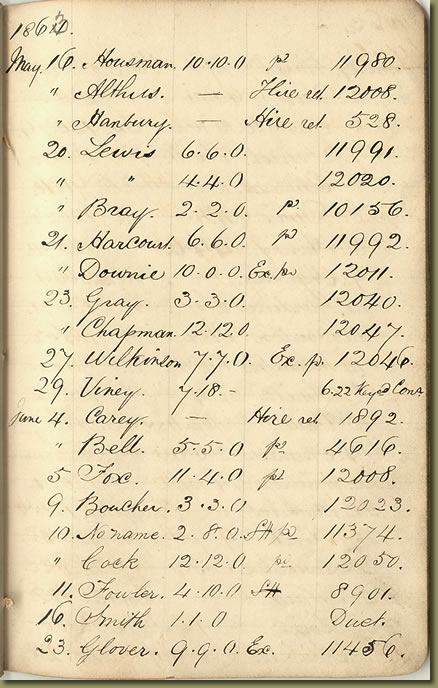 186
May. 16. Housman. 10.10.0 pd 11980.
" Althus. — Hire ret. 12008.
" Hanbury. — Hire ret. 528.
20. Lewis 6.6.0. 11991.
" " 4.4.0 12020.
" Bray. 2.2.0. pd 10156.
21. Harcourt. 6.6.0. pd 11992.
" Downie 10.0.0. Ex. pd 12011.
23. Gray. 3.3.0. 12040.
" Chapman. 12.12.0 12047.
27. Wilkinson 7.7.0. Ex. p. 12046.
29. Viney. 7.18.- 6.22 Keyed Con
June 4. Carey. — Hire ret. 1892.
" Bell. 5.5.0 pd 4616.
5. Fox. 11.4.0 pd 12008.
9. Boucher. 3.3.0 12023.
10. No name. 2.8.0. SH pd 11374.
" Cock 12.12.0 pd 12050.
11. Fowler. 4.10.0 SH 8901.
16. Smith 1.1.0 Duct.
23. Glover. 9.9.0. Ex. 11456.